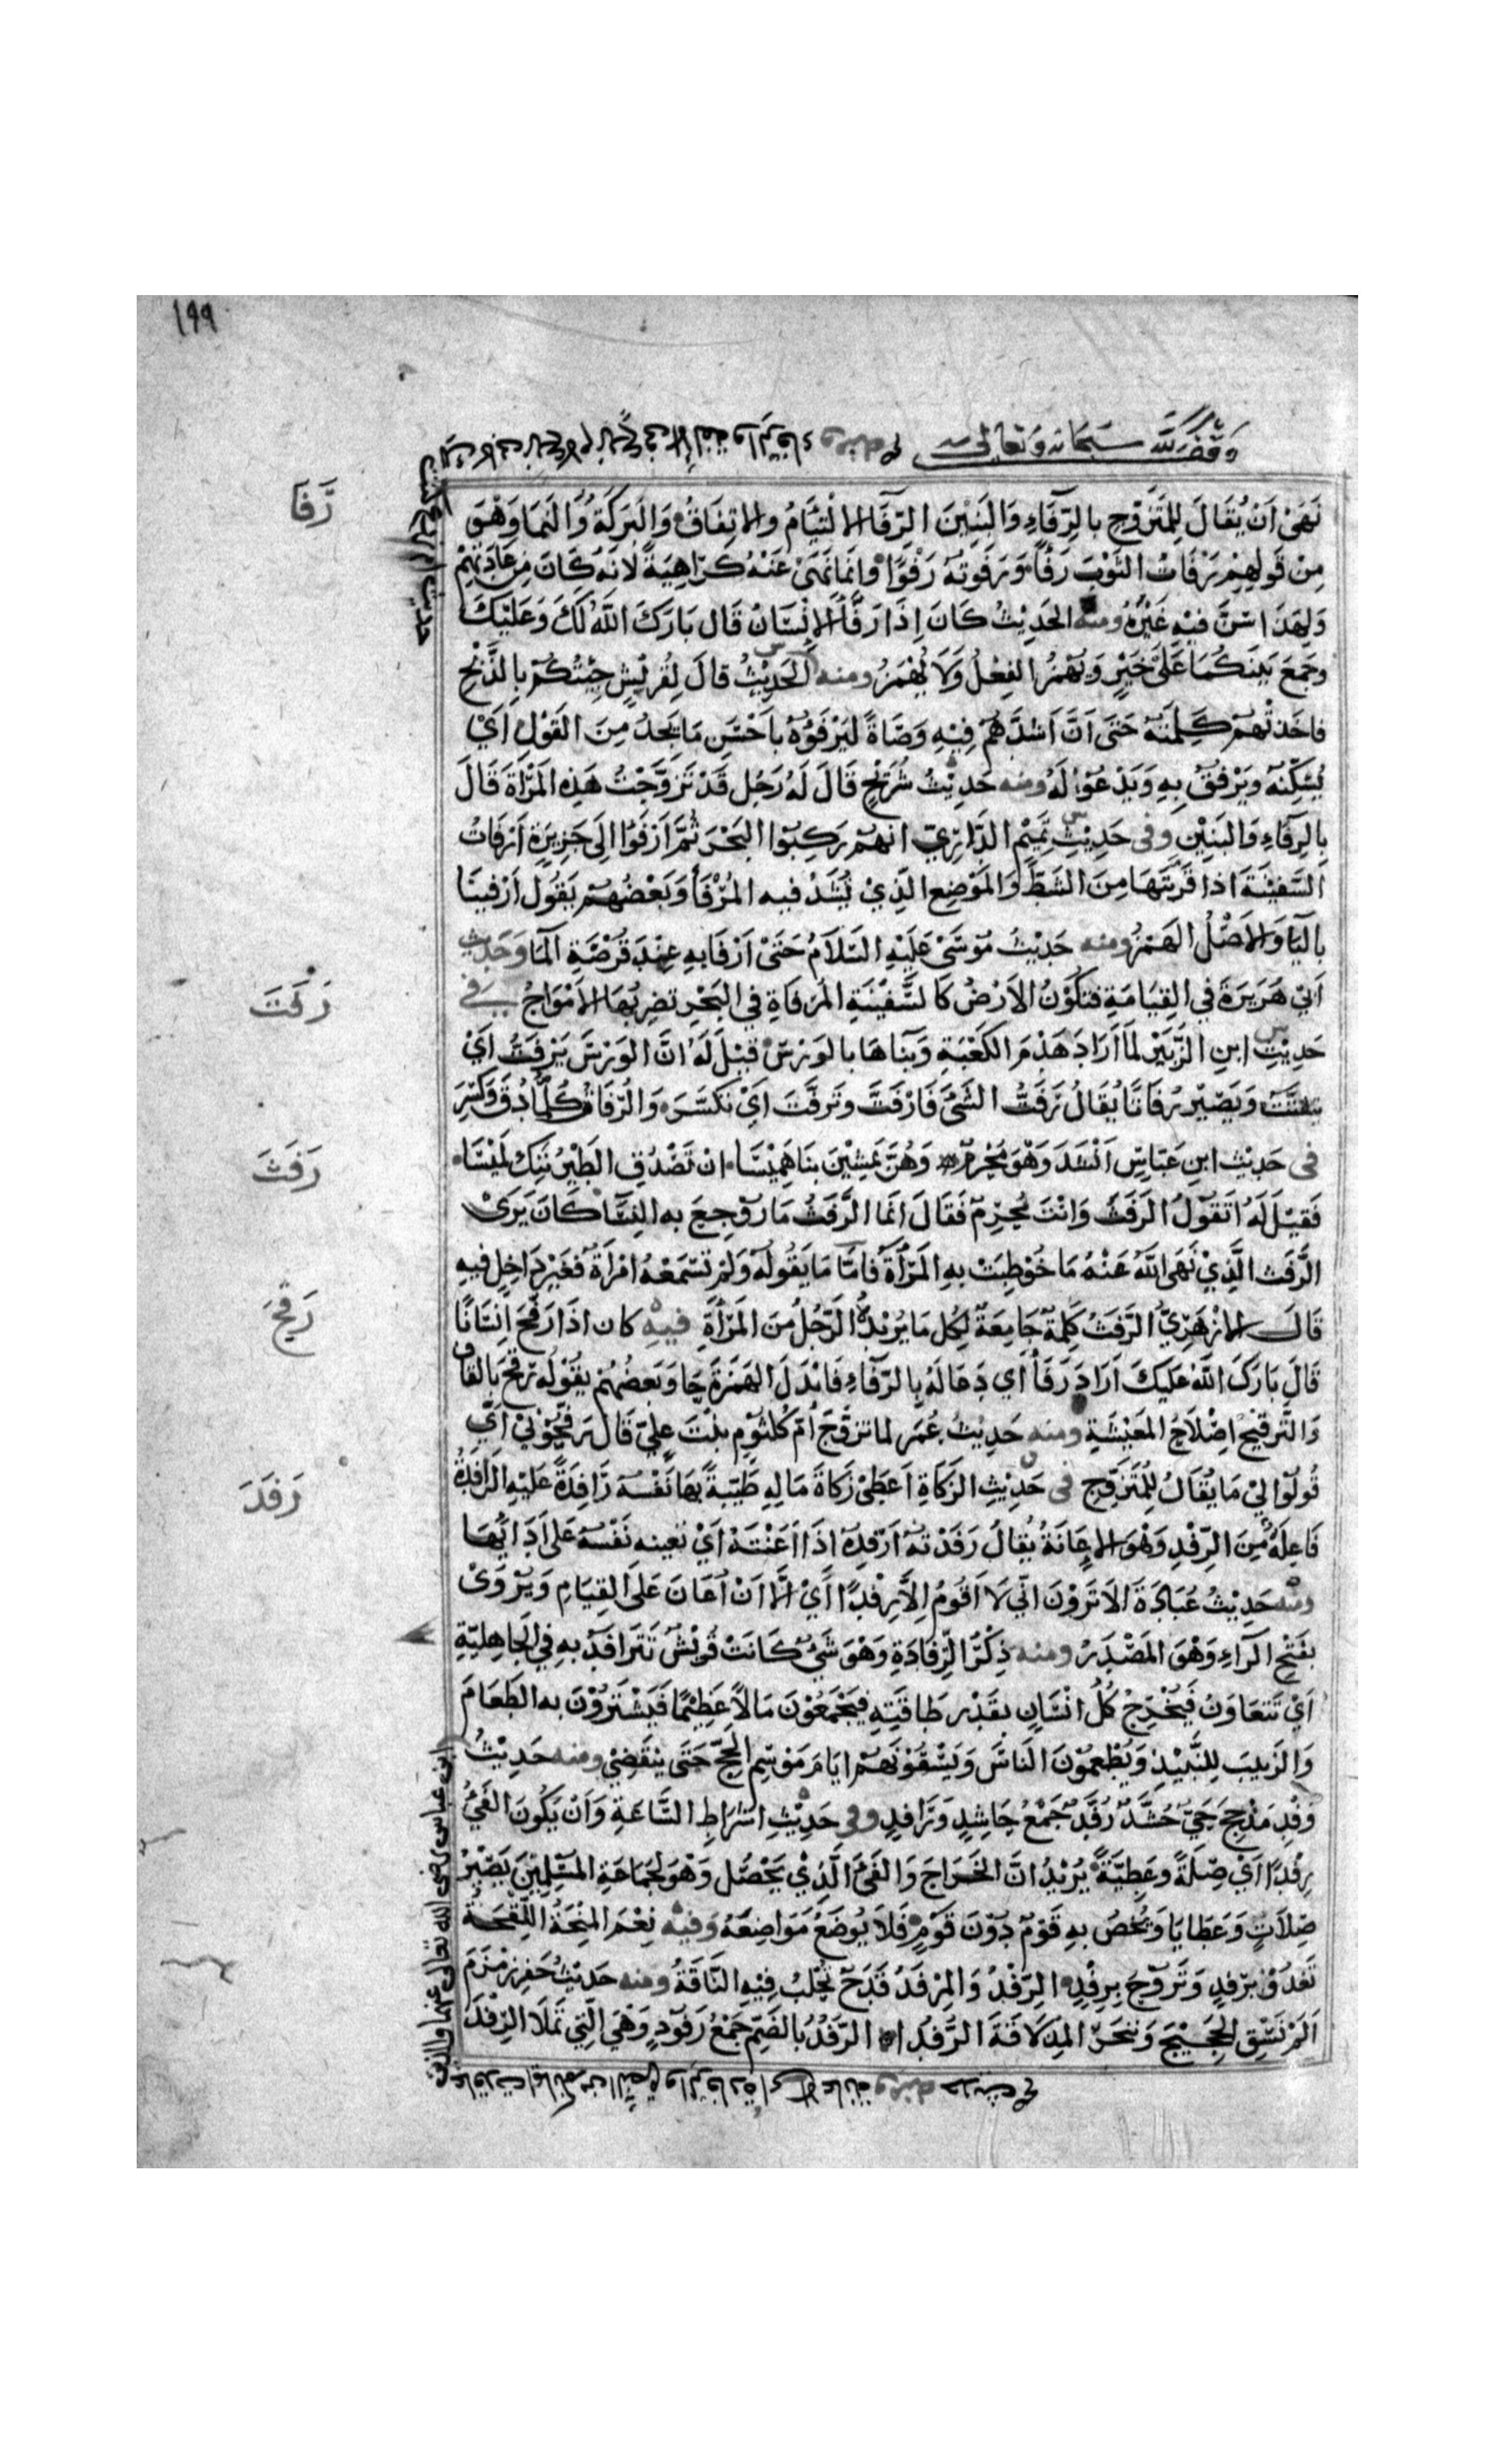 ١٩٩
وقف لله سبحانه وتعالى
رَفَأ
نَهَى اَنْ يُقَالَ لِلمُتَزَوِّجِ بالرِّفَاءِ وَالبَنِيْنَ الرِّفَاالالْتِيَامُ والاتِفَاقُ وَالبَرَكَةُ وَالنَمَا وَهْوَ
مِنْ قَولِهِمْ رَفَاتُ الثَوْبَ رَفْأً وَرَفَوتهُ رَفْوًا وانَّمَا نَهَى عَنْهُ كَرَاهِيَةً لانَهُ كَانَ مِن عَادَتِهِمْ
وَلِهَذَا سُنَّ فيْهِ غَيْرُهُ ومنه الحَدِيْثُ كَانَ اِذَا رَفَّأَ الاِنْسَانَ قَال بَارَكَ اللّٰهُ لَكَ وَعَلَيْكَ
وجَمَعَ بَيْنَكُمَا عَلَى خَيْرٍ وَيُهْمَزُ الفِعْلُ وَلَا يُهْمَزُ ومنه الحَدِيْثُ قالَ لِقُرَيْشٍ جِئْتُكُمْ بِالذَّبْحِ
فاخَذَتْهُمْ كَلِمَتُهُ حَتَى اَنَّ اَشَدَّهُمْ فِيْهِ وَصَاةً لَيَرْفَؤُهُ بِاَحْسَنِ مَا يَجِدُ مِنَ القَوْلِ اَيْ
يُسَكِّنُهُ وَيَرْفقُ بِهِ وَيَدْعُوْا لَهُ ومنه حَدِيْثُ شُرَيْحٍ قَالَ لَهُ رَجُل قَدْ تَزَوَّجْتُ هَذِهِ المَرْأَةَ قَالَ
بِالرِفَاءِ وَالبَنِيْنِ وفى حَدِيْثِ تَمِيْمٍ الدَّارِيّ انَهُمْ رَكِبُوا البَحْرَ ثُمَّ اَرْفَوْا الَى جَزِيرَةٍ اَرْفَاتُ
السَفِيْنَةَ اذا قَرَّبْتَهَا مِنَ الشَطّ وَالمَوْضِع الَّذِيْ تُشَدّ فيه المُرْفَأ وَبَعْضُهُمْ يَقُولُ اَرْفينَا
بِاليَا وَالاصْلُ الهَمْزُ ومنه حَدِيْثُ مُوْسَى عَلَيْهِ السَلَامُ حَتَى اَرْفَا بهِ عِنْدَ فُرْضَةِ المَا وَحَدِيث
رَفَتَ
اَبِي هُرَيرَةَ في القِيَامَةِ فتكُوْنُ الاَرْضُ كَالسَّفِيْنَةِ المُرْفَاةِ في البَحْرِ تضرِبُهَا الاَمْوَاجُ في
حَدِيْثِ ابنِ الزُبَيْرِ لَمَا اَرَادَ هَدْمَ الكَعْبَةِ وَبِنَاهَا بالوَرْسِ قيْلَ لَهُ انَّ الوَرْسَ يَرْفَتُّ اَيْ
يَتَفَتَّتُ وَيَصِيْر رُفَاتًا يُقَالُ رَفَتُّ الشَيَ فَارْفَتَّ وتَرفَّتَ اَيْ تكَسَّرَ وَالرُفَاتُ كُلُّ مَا دُقَّ وَكُسِّرَ
رَفَثَ
فى حَدِيْث ابنِ عَبَاسٍ اَنْشَدَ وَهْوَ مُحْرِمٌ وَهُنَّ يَمْشِيْنَ بِنَا هَمِيْسَا ان تَصْدُقِ الطَيْرُ نَنِكْ لَمِيْسَا
فَقِيْلَ لَهُ اَتَقُوْلُ الرَفَثَ وَانْتَ مُحْرِمٌ فَقَالَ انَما الرَّفَثُ مَا رُوْجِعَ به النِسَا كَانَ يَرَى
الرَّفَث الَّذِيْ نَهَى اللّٰهُ عَنْهُ مَا خُوْطِبَتْ بِهِ المَرْأَةُ فَامَّا مَا يَقُولُهُ وَلمْ تَسْمَعْهُ امْرَاَةٌ فَغَيْر دَاخِلٍ فيهِ
رَفَحَ
قَالَ الازْهَرِيّ الرَّفَثُ كَلِمَةٌ جَامِعَةٌ لِكُلِ مَا يُرِيْدُهُ الرَّجُلُ مِنَ المَرْأَةِ فيهِ كان اذَا رَفَّحَ اِنْسَانًا
قَالَ بَارَكَ اللّٰهُ عَلَيكَ اَرَادَ رَفَّأَ اَي دَعَا لَهُ بِالرِّفَاءِ فَابْدَلَ الهَمْزَةَ حَا وَبَعضُهُمْ يقُوْلُ رَقَّحَ بالقَاف
وَالتَّرقِيْحُ اِصْلَاحُ المَعِيْشَةِ ومنه حَدِيْثُ عُمَر لما تزوَّجَ اُمَ كُلْثُوْمٍ بِنْتَ عِليّ قَالَ رَفِّحُوْنِيْ اَيْ
رَفَدَ
قُولُوا لِيْ مَا يُقَالُ لِلمُتَزَوِّجِ فى حَدِيْثِ الزَكَاةِ اَعطَى زَكَاةَ مَالِهِ طَيِّبَةً بِهَا نَفْسُهُ رَافِدَةً عَليْهِ الرَافِدَةُ
فَاعِلَةٌ مِنَ الرِّفْدِ وَهْوَ الاِعَانَةُ يُقَالُ رَفَدْتهُ اَرْفِدُهُ اذَا اَعَنْتَهُ اَيْ تُعِينُه نَفْسُهُ عَلَى اَدَائِهَا
ومنه حَدِيْثُ عُبَادَةَ الَا تَرَوْنَ انِّي لَا اَقُومُ اِلاَّ رِفْدًا اَيْ الَّا اَنْ اُعَانَ عَلَى القِيَامِ وَيُرْوَى
بِفَتْحِ الرَاءِ وَهْوَ المَصْدَرُ ومنه ذِكْرُ الرِّفَادَةِ وَهْوَ شَيْ كَانَتْ قُرَيْشٌ تَتَرَافَدُ بهِ فِي الجَاهِلِيَّةِ
اَيْ تَتَعَاوَنُ فَيُخْرِجُ كُلُّ انْسَانٍ بقَدْر طَاقَتِهِ فيَجْمَعُوْنَ مَالاً عَظِيْمًا فَيَشْتَرُوْنَ به الطَعَامَ
وَالزَبِيبَ لِلنَّبِيْذِ وَيُطْعِمُوْنَ النَاسَ وَيَسْقُوْنَهُمْ ايَامَ مَوْسِمِ الحَجّ حَتَى يَنْقَضِيْ ومنه حَدِيْثُ
وَفْدِ مَذْحِجَ حَيّ حُشَّد رُفَّد جَمْعُ حَاشِدٍ وَرَافِدٍ وفى حَدِيْثِ اشْرَاطِ السَّاعَةِ وَاَنْ يَكُونَ الفَيْ
رِفْدًا اَيْ صِلَةً وعَطِيَّةً يُرِيْدُ انَّ الخَرَاجَ وَالفَيَ الَّذِيْ يَحْصُل وَهْوَ لِجَمَاعَةِ المُسْلِمِيْنَ يَصِيْرُ
صِلَاتٍ وَعَطَايَا وَيُخَصُ بِهِ قَوْمٌ دُوْنَ قَوْمٍ فَلَا يُوضَعُ مَوَاضِعَهُ وَفيه نِعْمَ المِنْحَةُ اللِّقْحَةُ
تَغْدُوْ بِرِفْدٍ وَتَرُوْحُ بِرِفْدٍ الرِفْدُ وَالمِرْفَدُ قَدَحٌ تُحْلَبُ فِيْهِ النَاقَةُ ومنه حَدِيْثُ حَفرِ زمْزَمَ
اَلَمْ نَسْقِ الحَجِيْجَ وَنَنْحَرُ المِذْلَاقَةَ الرُّفُدَا الرُفُدُ بالضَمِّ جَمْعُ رَفُودٍ وَهْيَ الَّتِي تَمْلَأ الرِفْدَ
ابن عباس رضى الله تعالى عنهما والذين